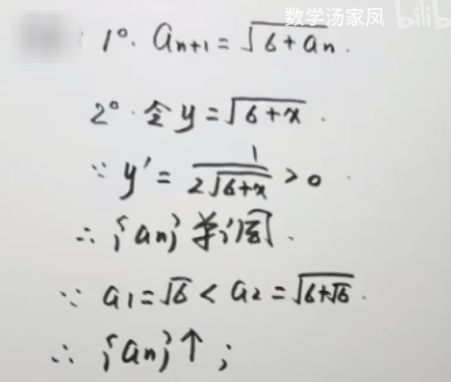 数学汤家凤
bilib
1°. a_{n+1} = √(6+a_n).
2°. 令 y = √(6+x).
∵ y' = 1/(2√(6+x)) > 0
∴ {a_n} 单调.
∵ a_1 = √6 < a_2 = √(6+√6).
∴ {a_n}↑;